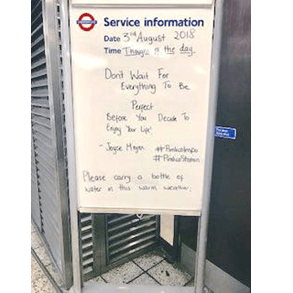 Service information
Date 3rd August 2018
Time Thought of the day
Don't Wait For
Everything To Be
Perfect
Before You Decide To
Enjoy Your Life!
- Joyce Meyer
Please carry a bottle of
water in this warm weather.